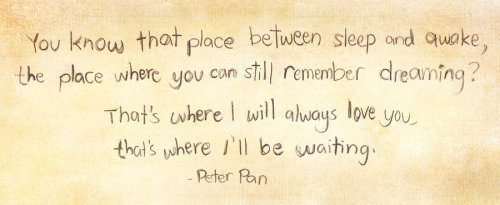 You know that place between sleep and awake,
the place where you can still remember dreaming?
That's where I will always love you,
that's where I'll be waiting.
- Peter Pan